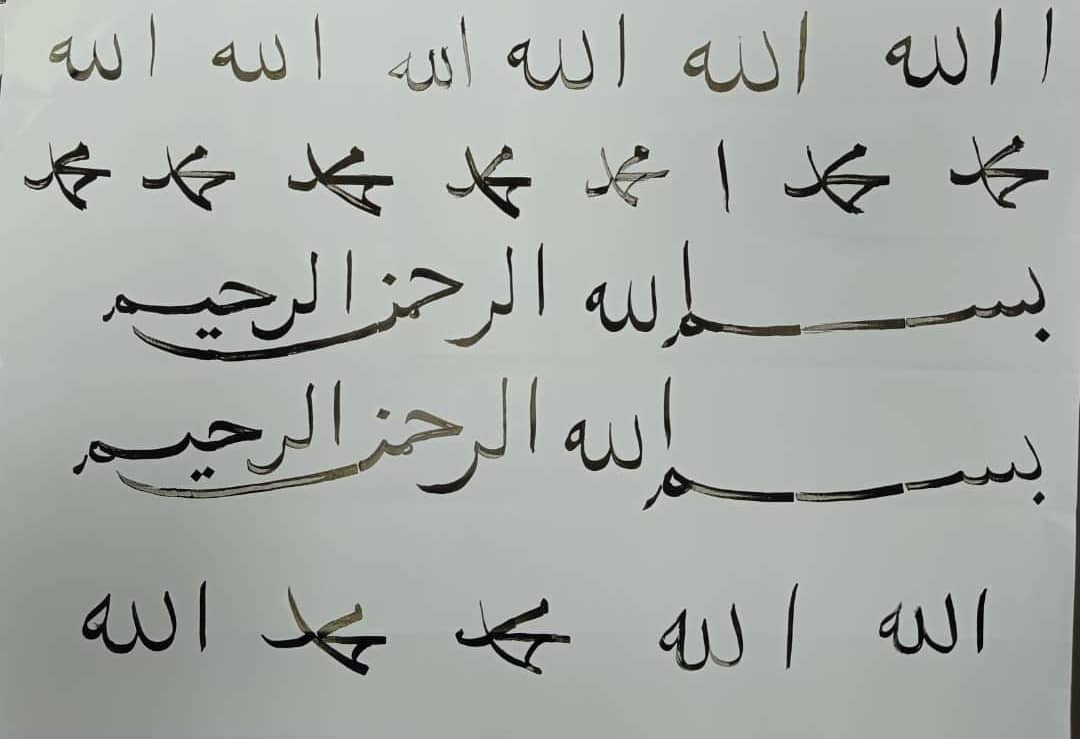 ا الله الله الله الله الله الله
محمد محمد ا محمد محمد محمد محمد محمد
بسم الله الرحمن الرحيم
بسم الله الرحمن الرحيم
الله الله محمد محمد الله